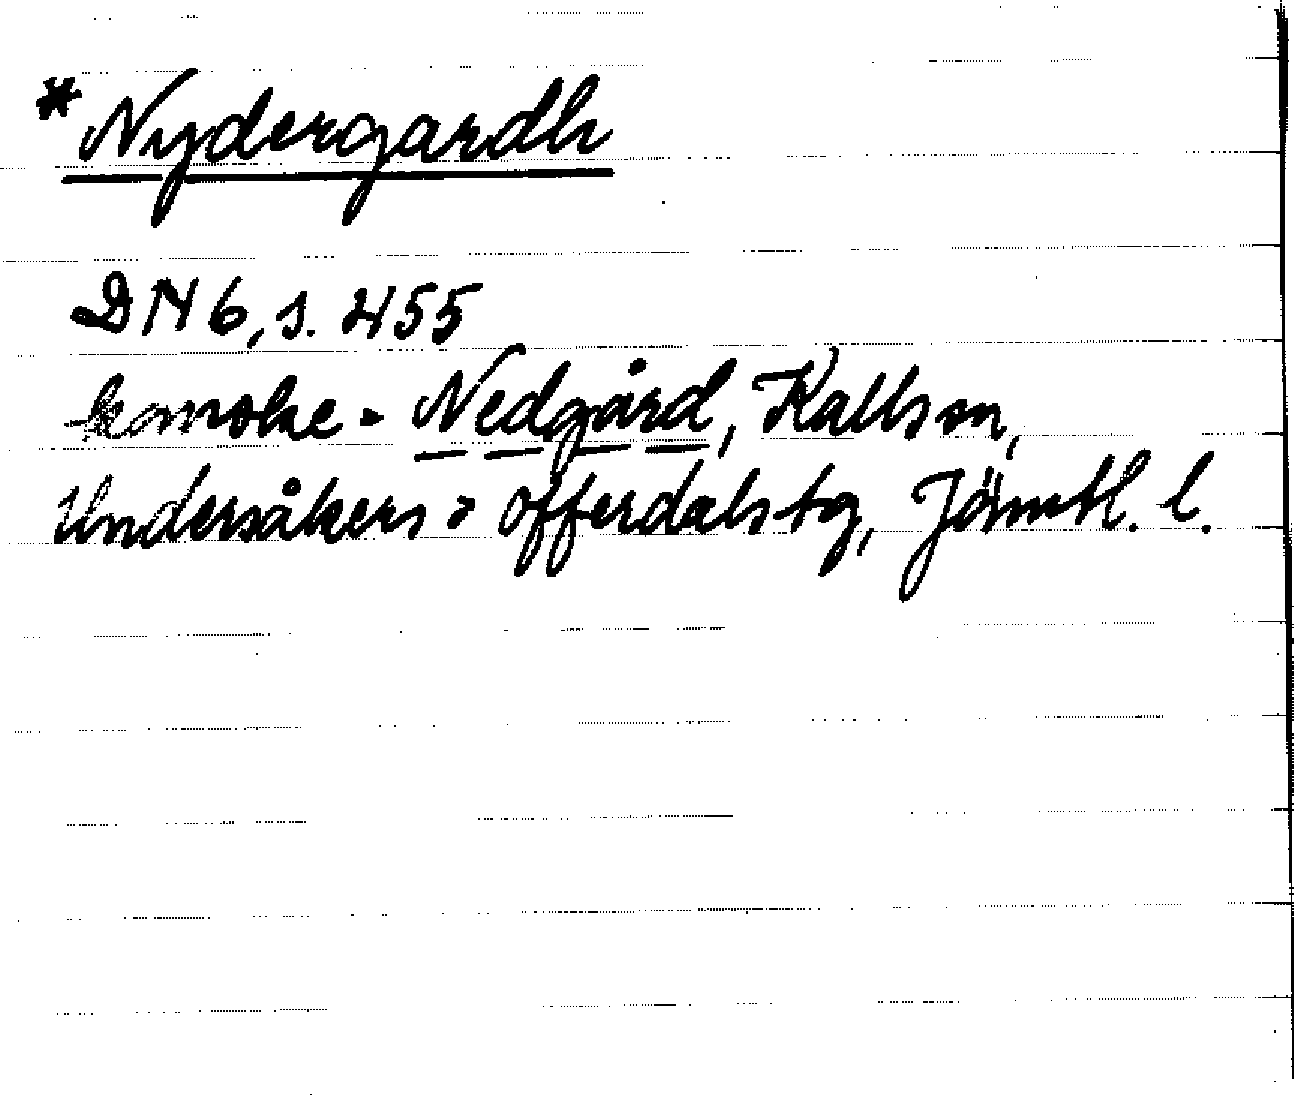 *Nydergardh
DN 6, s. 455
kanske = Nedgård, Kalls sn,
Undersåkers o Offerdals tg, Jämtl. l.